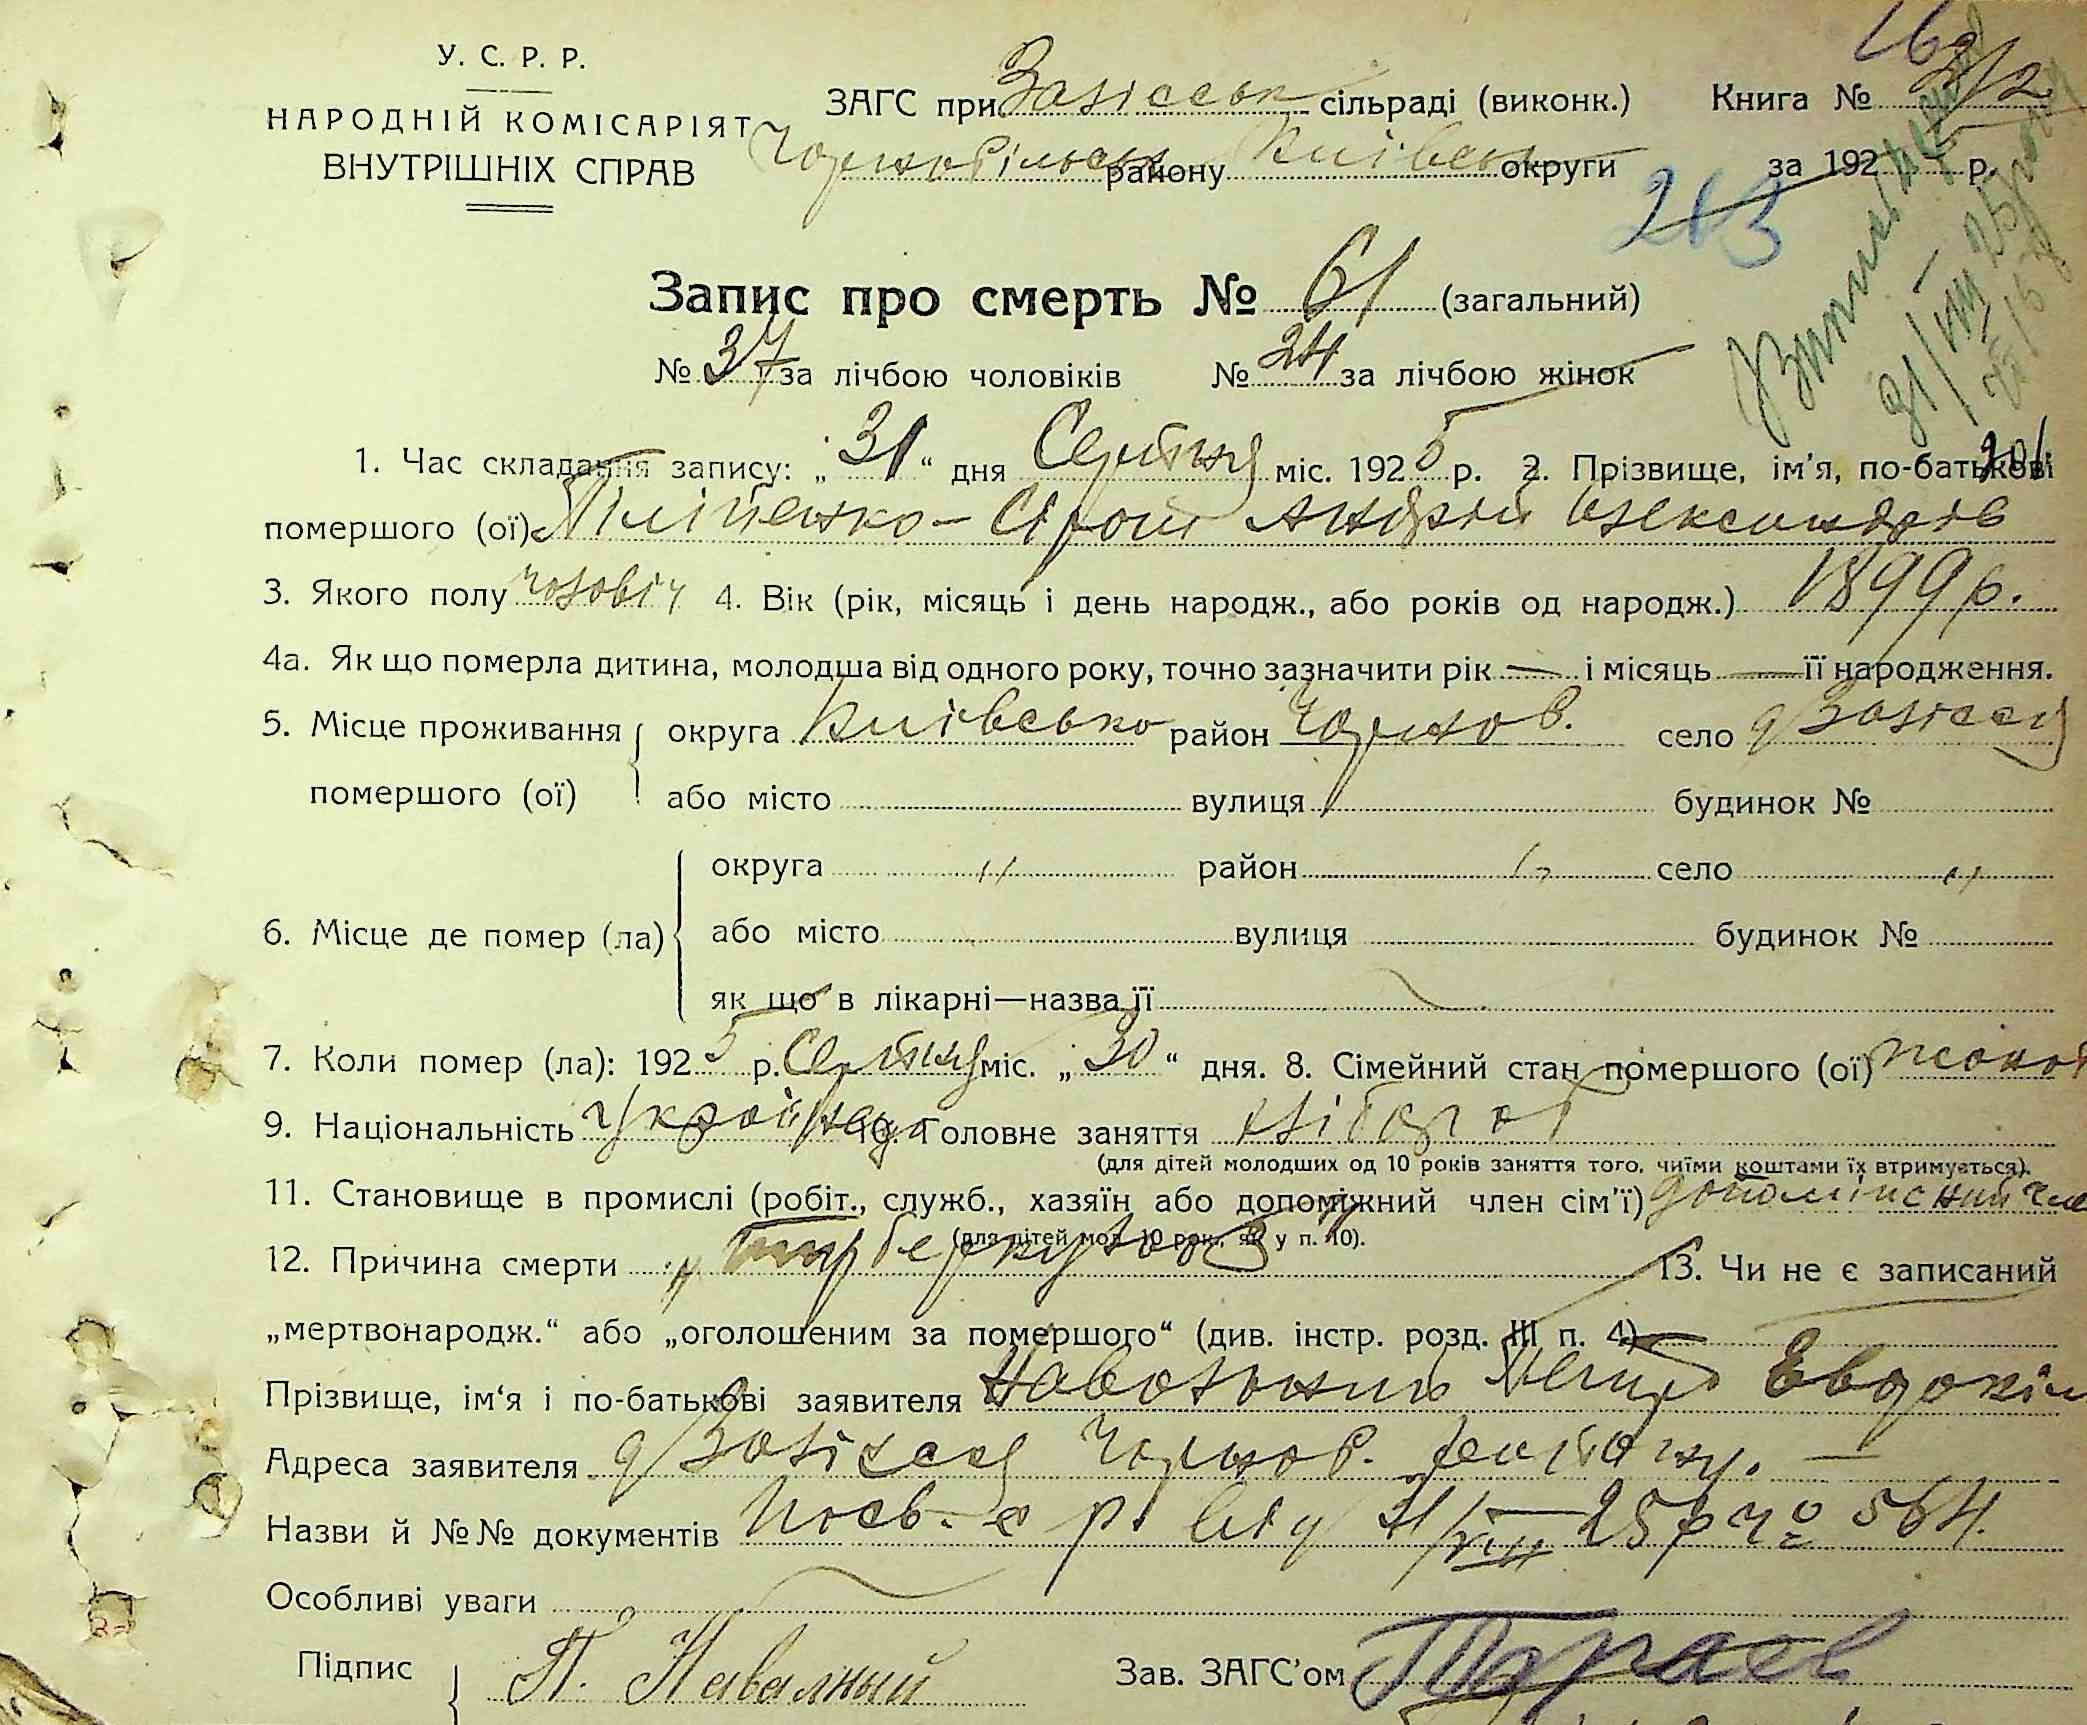 У. С. Р. Р.
НАРОДНІЙ КОМІСАРІЯТ
ВНУТРІШНІХ СПРАВ
ЗАГС при Залісськ сільраді (виконк.) Книга № 2/2
Чорнобільськ району Київськ округи за 1925 р.
213
Запис про смерть № 61 (загальний)
№ 37 за лічбою чоловіків № 24 за лічбою жінок
1. Час складання запису: „31“ дня Серпня міс. 1925 р. 2. Прізвище, ім'я, по-батькові
помершого (ої) Піліпенко-Сірош Андрій Олександрів
3. Якого полу чоловіч 4. Вік (рік, місяць і день народж., або років од народж.) 1899 р.
4а. Як що померла дитина, молодша від одного року, точно зазначити рік — і місяць — її народження.
5. Місце проживання округа Київсько район Чорноб. село Залісся
помершого (ої) або місто вулиця будинок №
округа " район " село "
6. Місце де помер (ла) або місто вулиця будинок №
як що в лікарні—назва її
7. Коли помер (ла): 1925 р. Серпня міс. „30“ дня. 8. Сімейний стан помершого (ої) жонат
9. Національність Українець 10. Головне заняття хлібороб
(для дітей молодших од 10 років заняття того, чиїми коштами їх втримується).
11. Становище в промислі (робіт., служб., хазяїн або допоміжний член сім'ї) допоміжний чле
(для дітей мол. 10 рок., як у п. 10).
12. Причина смерти туберкульоз 13. Чи не є записаний
„мертвонародж.“ або „оголошеним за помершого“ (див. інстр. розд. III п. 4) —
Прізвище, ім'я і по-батькові заявителя Навальний Петро Евдокім
Адреса заявителя Залісся Чорноб. району. —
Назви й №№ документів Посв. с р від 31/VIII 25 р № 564.
Особливі уваги
Підпис П. Навалный Зав. ЗАГС'ом